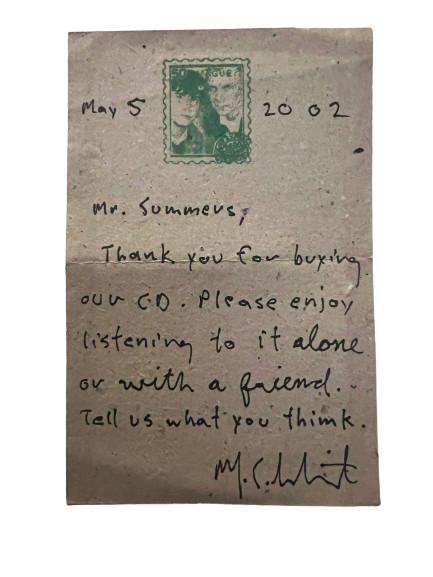 May 5 2002
50 GUE
Mr. Summers,
Thank you for buying
our CD. Please enjoy
listening to it alone
or with a friend.
Tell us what you think.